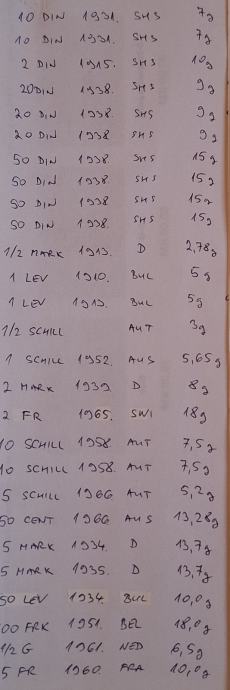 10 DIN 1931. SHS 7g
10 DIN 1931. SHS 7g
2 DIN 1915. SHS 10g
20DIN 1938. SHS 9g
20 DIN 1938 SHS 9g
20 DIN 1938 SHS 9g
50 DIN 1938 SHS 15g
50 DIN 1938. SHS 15g
50 DIN 1938. SHS 15g
50 DIN 1938. SHS 15g
1/2 MARK 1913. D 2,78g
1 LEV 1910. BUL 5g
1 LEV 1913. BUL 5g
1/2 SCHILL AUT 3g
1 SCHILL 1952. AUS 5,65g
2 MARK 1939. D 8g
2 FR 1965. SWI 18g
10 SCHILL 1958 AUT 7,5g
10 SCHILL 1958. AUT 7,5g
5 SCHILL 1966 AUT 5,2g
50 CENT 1966 AUS 13,28g
5 MARK 1934. D 13,7g
5 MARK 1935. D 13,7g
50 LEV 1934. BUL 10,0g
00 FRK 1951. BEL 18,0g
1/2 G 1961. NED 6,5g
5 FR 1960. FRA 10,0g